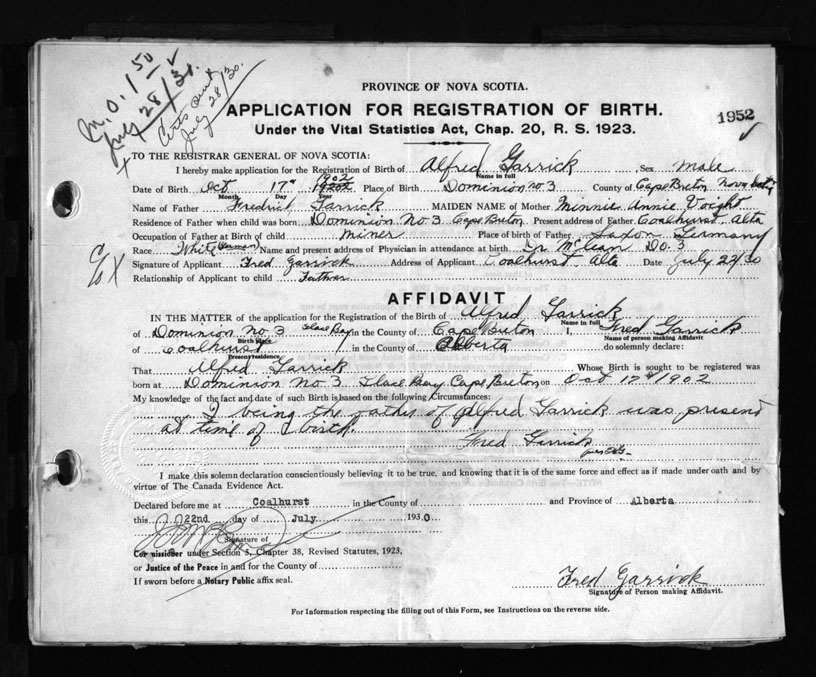 M.O. 1 50
July 28/30.
Certs sent
July 28/30.
PROVINCE OF NOVA SCOTIA.
APPLICATION FOR REGISTRATION OF BIRTH.
1952
Under the Vital Statistics Act, Chap. 20, R. S. 1923.
TO THE REGISTRAR GENERAL OF NOVA SCOTIA:
I hereby make application for the Registration of Birth of Alfred Garrick Sex male
Name in full
Date of Birth Oct 17th 1902 Place of Birth Dominion no 3 County of Cape Breton Nova Scotia
Month Day Year
Name of Father Fredrick Garrick MAIDEN NAME of Mother Minnie Annie Voight
Residence of Father when child was born Dominion No 3 Cape Breton Present address of Father Coalhurst, Alta
Occupation of Father at Birth of child miner Place of birth of Father Saxon Germany
Race White (German) Name and present address of Physician in attendance at birth Dr McLean Do. 3
Signature of Applicant Fred Garrick Address of Applicant Coalhurst, Alta Date July 22/30
Relationship of Applicant to child Father
AFFIDAVIT
IN THE MATTER of the application for the Registration of the Birth of Alfred Garrick
Name in full
of Dominion No 3 Glace Bay in the County of Cape Breton I, Fred Garrick
Birth place Name of person making Affidavit
of Coalhurst in the County of Alberta do solemnly declare:
Present residence
That Alfred Garrick Whose Birth is sought to be registered was
born at Dominion No. 3 Glace Bay Cape Breton on Oct 17th 1902
My knowledge of the fact and date of such Birth is based on the following Circumstances:
I being the father of Alfred Garrick was present
at time of birth.
Fred Garrick
I make this solemn declaration conscientiously believing it to be true, and knowing that it is of the same force and effect as if made under oath and by
virtue of The Canada Evidence Act.
Declared before me at Coalhurst in the County of and Province of Alberta
this 22nd day of July 1930
Signature of
Commissioner under Section 3, Chapter 38, Revised Statutes, 1923,
or Justice of the Peace in and for the County of
If sworn before a Notary Public affix seal.
Fred Garrick
Signature of Person making Affidavit.
For Information respecting the filling out of this Form, see Instructions on the reverse side.